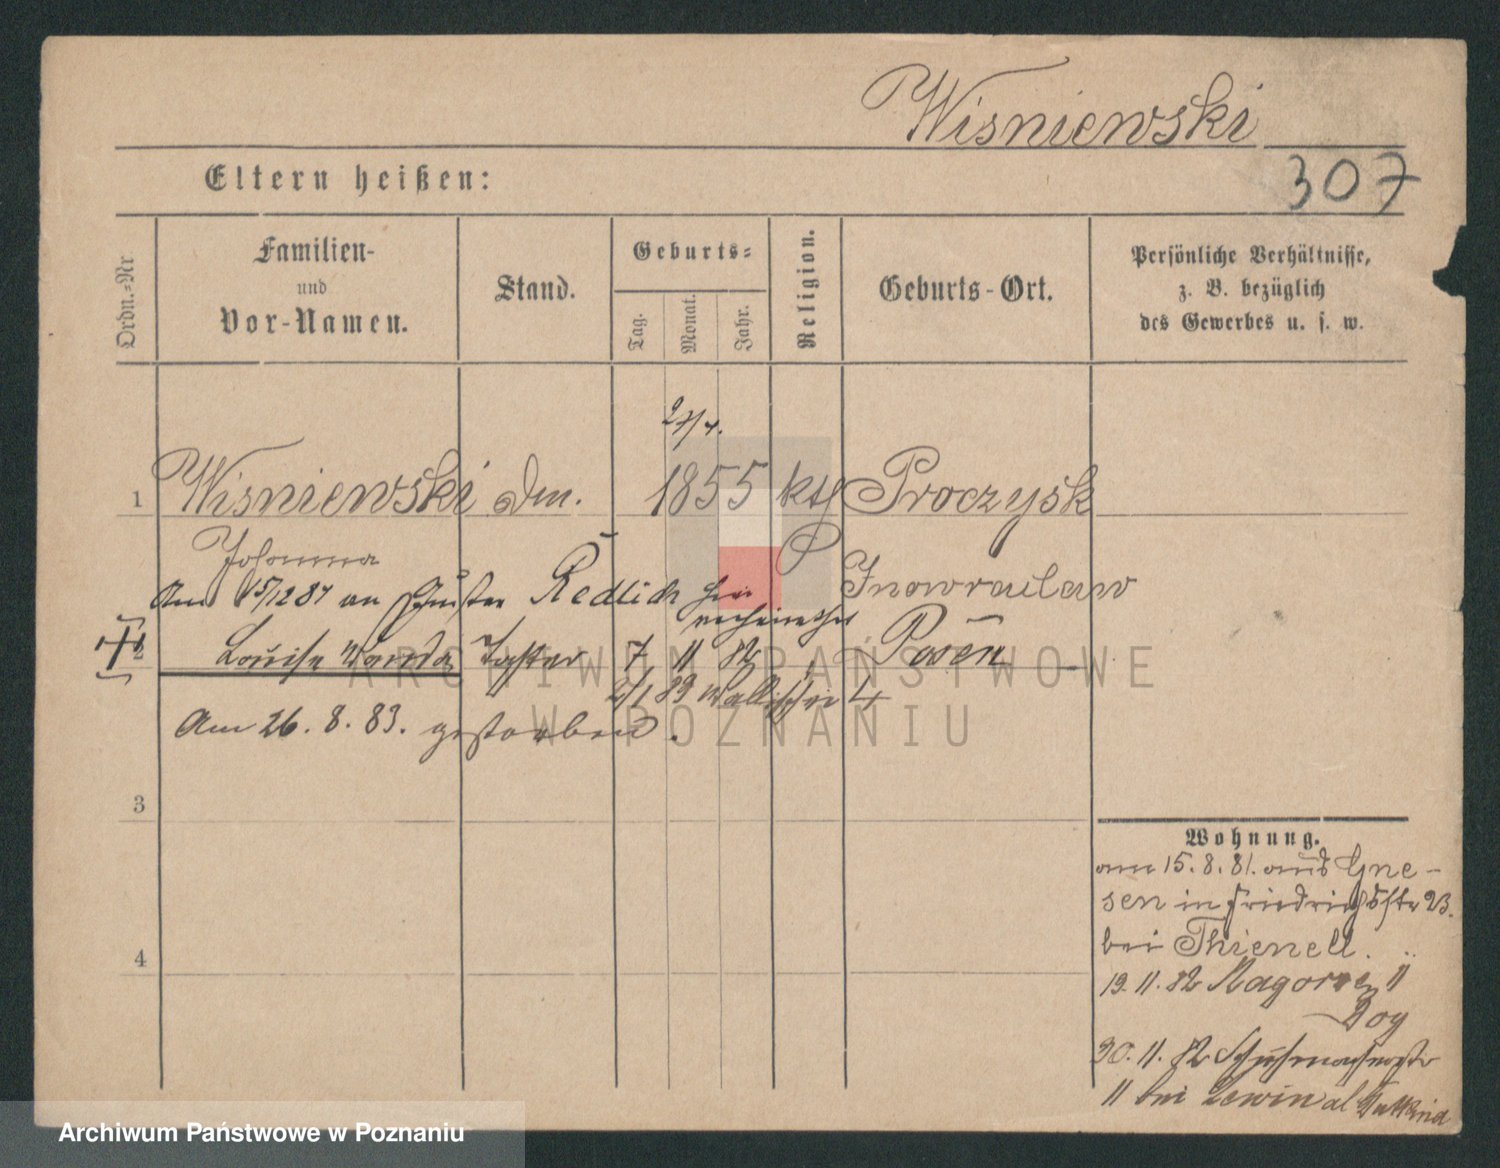 Wisniewski
307
Eltern heißen:
Ordn.-Nr
Familien-
und
Vor-Namen.
Stand.
Geburts-
Tag.
Monat.
Jahr.
Religion.
Geburts-Ort.
Persönliche Verhältnisse,
z. B. bezüglich
des Gewerbes u. s. w.
1 Wisniewski 1855 kth Proczysk
Johanna
Inowraclaw
Am 15/12 87 an Redlich hier
verheirathet
2 Louise Wanda Tochter 7 11 82 Posen
89 Wallischei 4
Am 26. 8. 83. gestorben.
3
4
Wohnung.
am 15. 8. 81. aus Gne-
sen in Friedrichstr 23.
bei Thienell.
19. 11. 82 11
30. 11. 82 Schuhmacherstr
11 bei Lewin
ARCHIWUM PAŃSTWOWE
W POZNANIU
Archiwum Państwowe w Poznaniu